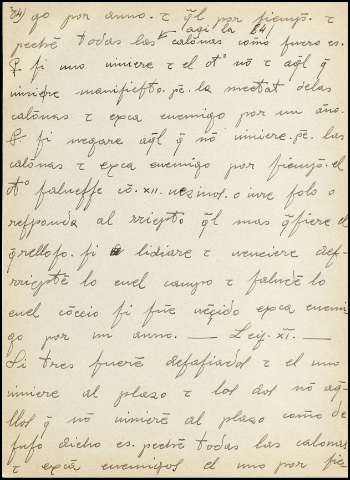 84) go por anno. τ q̃l por siemp̃. τ
agi-la 84)
peche todas las calonas como fuero es.
ꝶ si uno viniere τ el otº nō τ aq̃l q̃
viniere manifiesto. pe. la meetat delas
calonas τ exca enemigo por un año.
ꝶ. si negare aq̃l q̃ nō viniere. pe. las
calonas τ exca enemigo por siemp̃. el
otº salvesse cō. XII. vezinos. o iure solo o
responda al rriepto q̃l mas q̃siere el
qrelloso. si lidiare τ venciere def-
rriepte lo enel campo τ salude lo
enel cōceio si fue vēzido exca enemi
go por un anno. — Ley. XI. —
Si tres fuerē desafiados τ el uno
viniere al plazo τ los dos nō aq̃-
llos q̃ nō vinierē al plazo como de
suso dicho es. pechē todas las calonas
τ excā enemigos el uno por sie